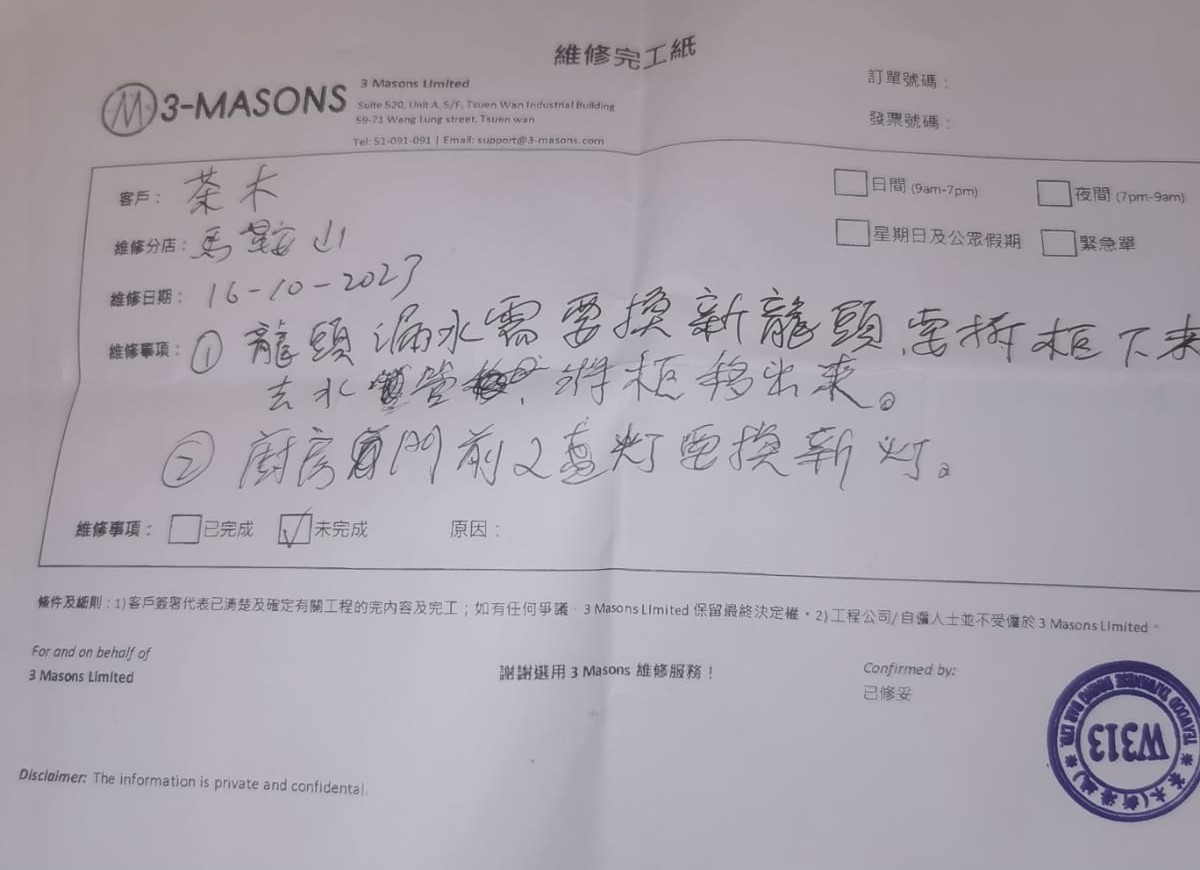 維修完工紙
訂單號碼：
發票號碼：
3-MASONS
3 Masons Limited
Suite 520, Unit A, 5/F, Tsuen Wan Industrial Building
59-71 Wang Lung street, Tsuen wan
Tel: 51-091-091 | Email: support@3-masons.com
客戶：茶木
維修分店：馬鞍山
維修日期：16-10-2023
日間 (9am-7pm)
夜間 (7pm-9am)
星期日及公眾假期
緊急單
維修事項：① 龍頭漏水需要換新龍頭，要拆柜下來
去水管，將柜移出來。
② 廚房門前2盞灯要換新灯。
維修事項：已完成 ✓未完成 原因：
條件及細則：1)客戶簽署代表已清楚及確定有關工程的完內容及完工；如有任何爭議，3 Masons Limited 保留最終決定權。2)工程公司/自僱人士並不受僱於 3 Masons Limited。
For and on behalf of
3 Masons Limited
謝謝選用 3 Masons 維修服務！
Confirmed by:
已修妥
W313
TEAWOOD TAIWANESE DINING BAR LTD.
茶木(香港)
Disclaimer: The information is private and confidental.